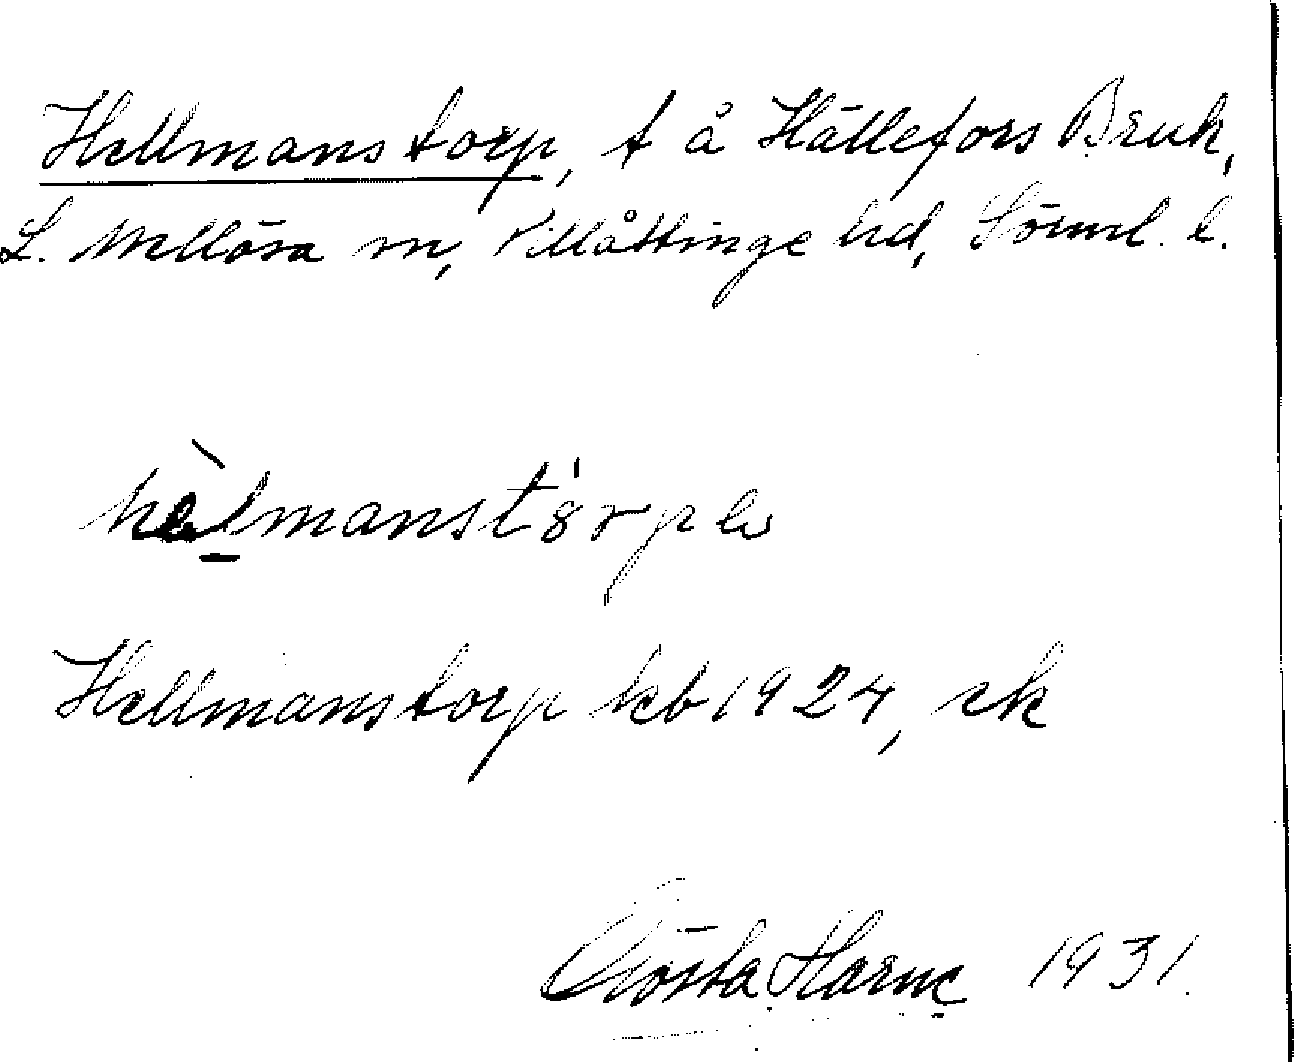 Hellmanstorp, t å Hällefors Bruk,
L. Mellösa sn, Villåttinge hd, Sörml. l.
hèlmanstorp
Hellmanstorp kb 1924, ek
Gösta Harne 1931.